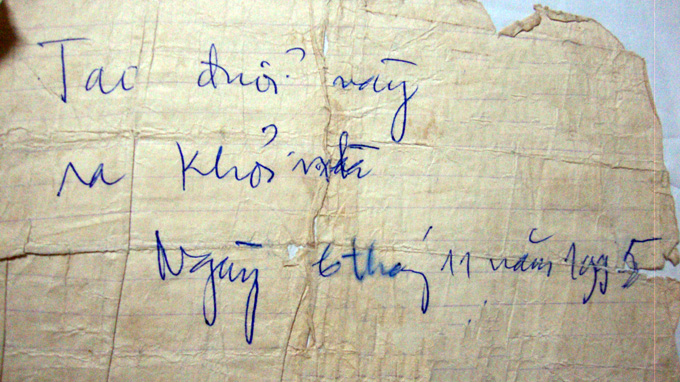 Tao đuổi mày
ra khỏi nhà
Ngày 6 tháng 11 năm 1995